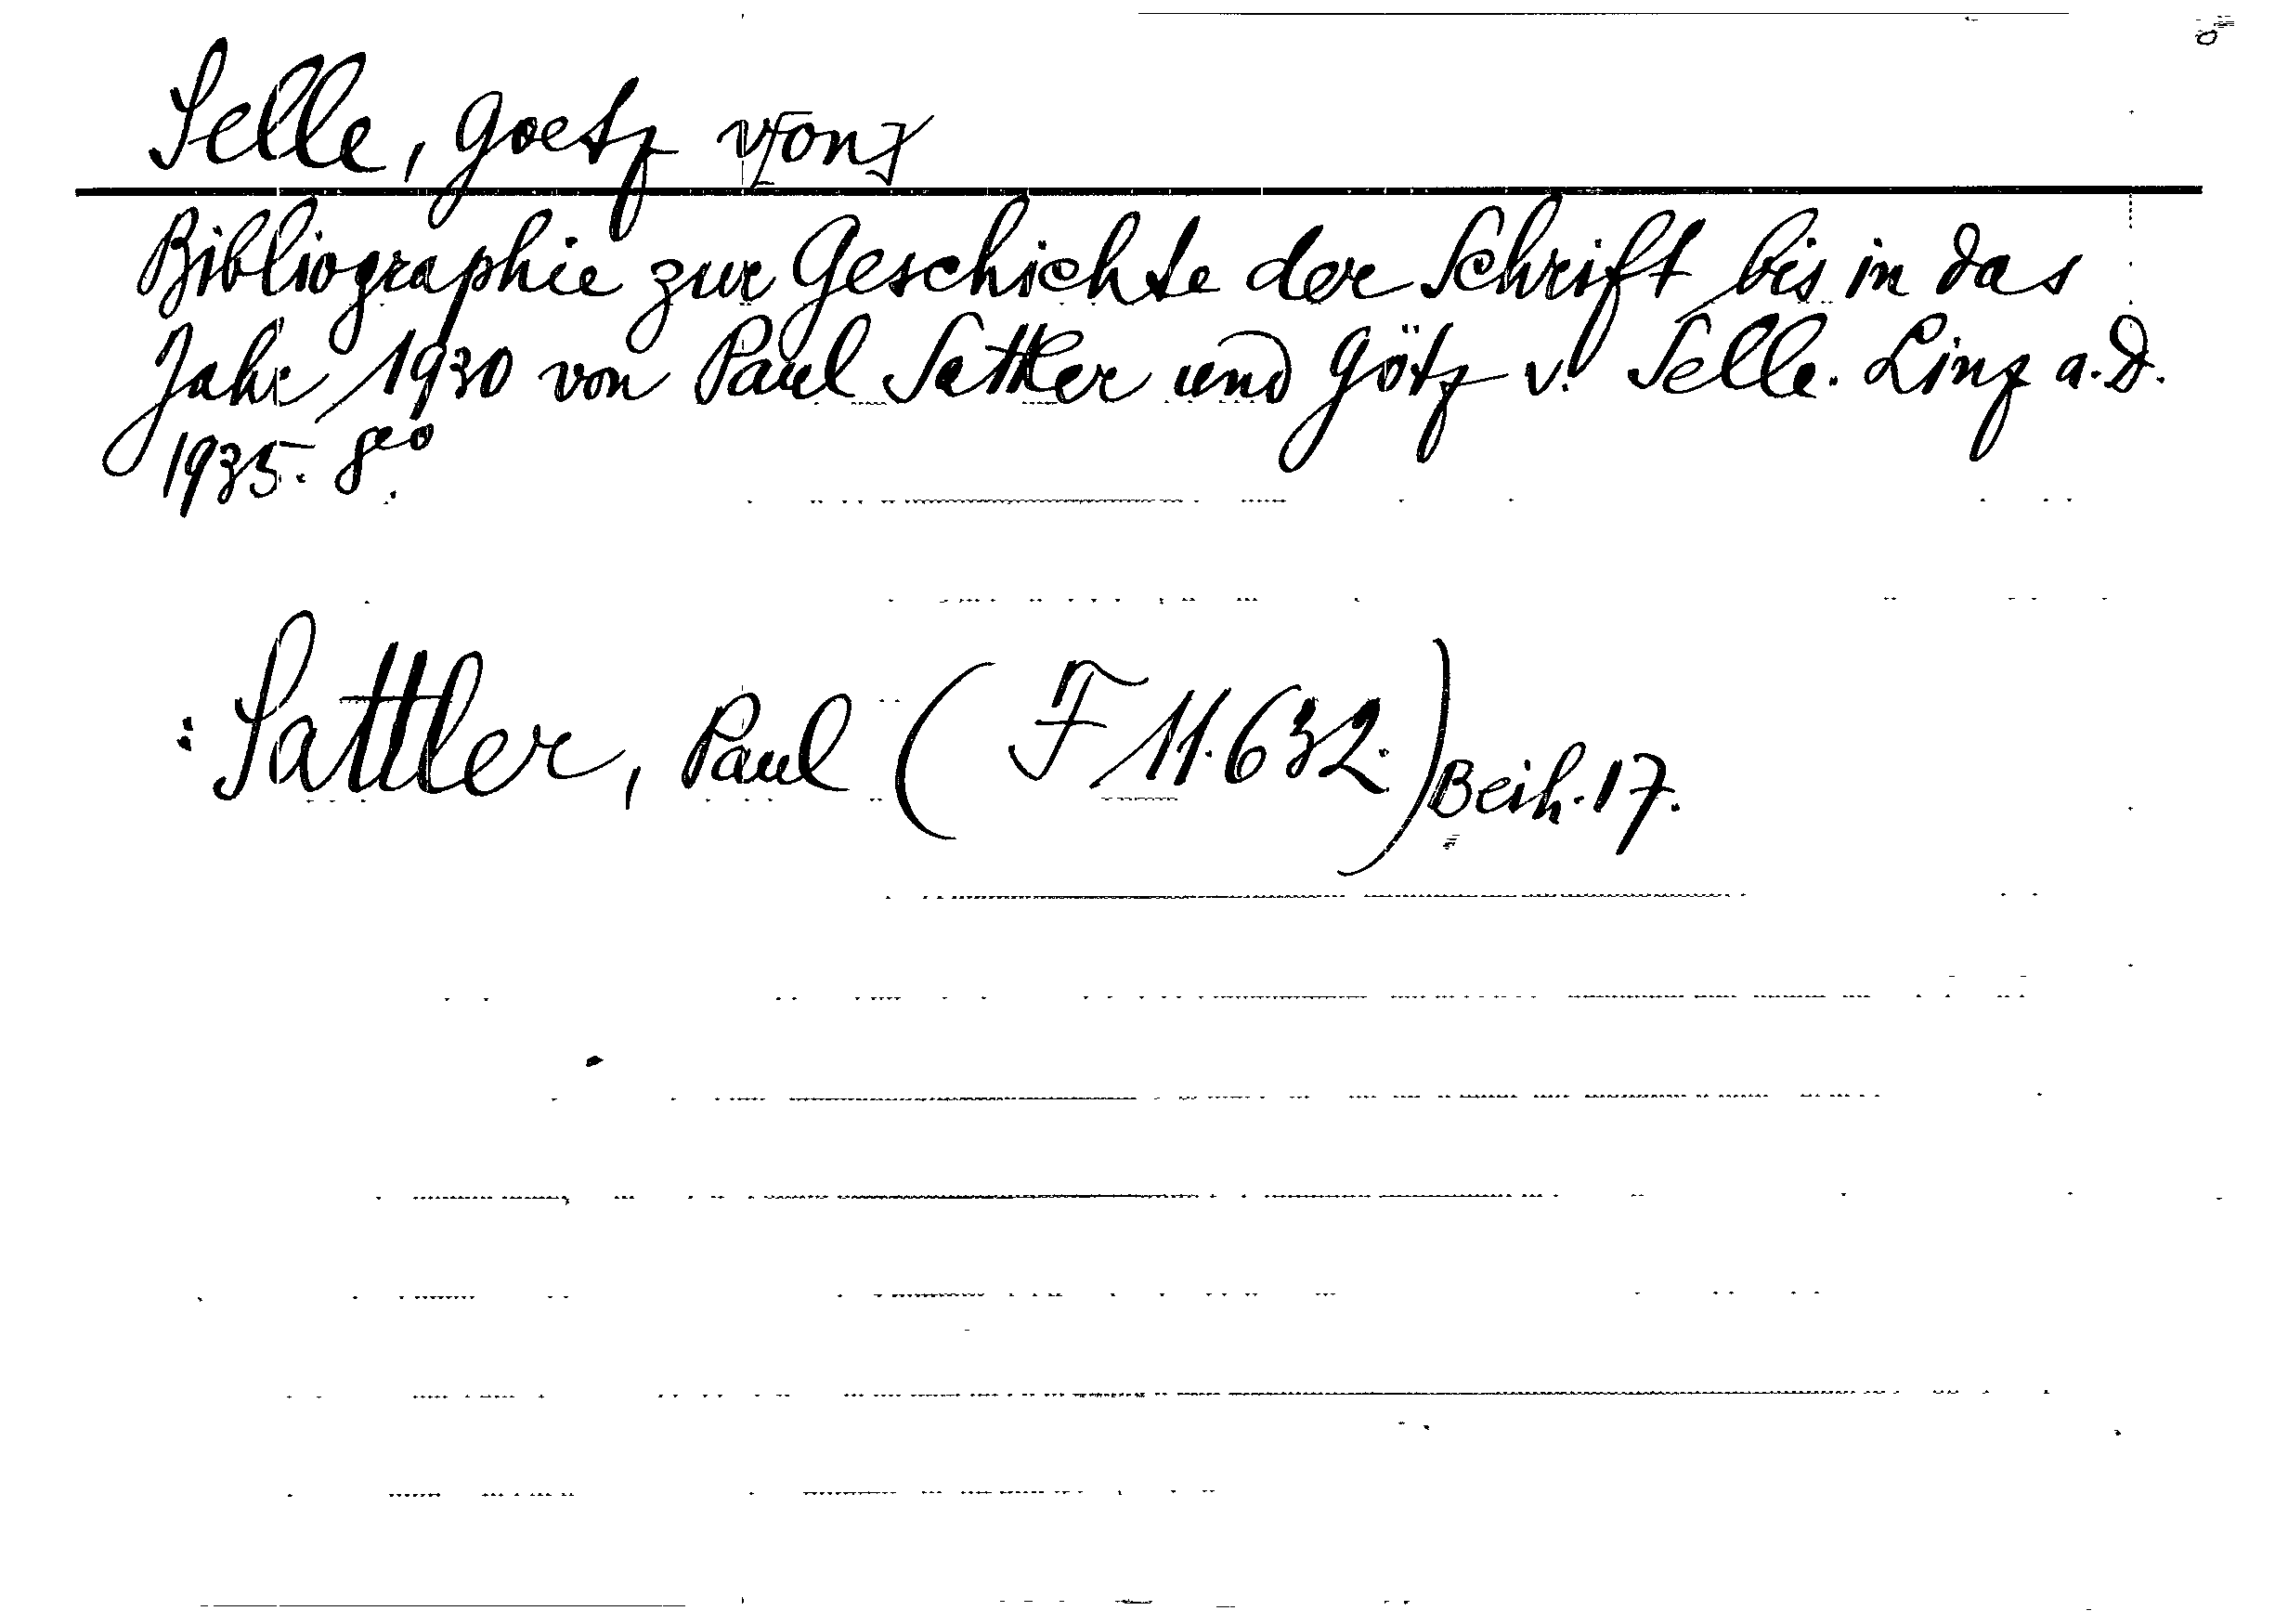 Selle, Goetz v[on]
Bibliographie zur Geschichte der Schrift bis in das
Jahr 1930 von Paul Sattler und Götz v. Selle. Linz a. D.
1935. 8vo.
: Sattler, Paul ( F 11.632.) Beih. 17.